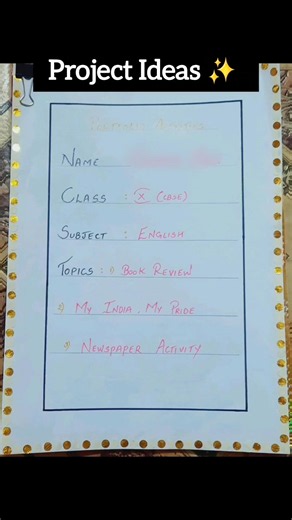 Project Ideas ✨
NAME
CLASS : X (CBSE)
SUBJECT : ENGLISH
TOPICS : 1) BOOK REVIEW
2) MY INDIA, MY PRIDE
3) NEWSPAPER ACTIVITY